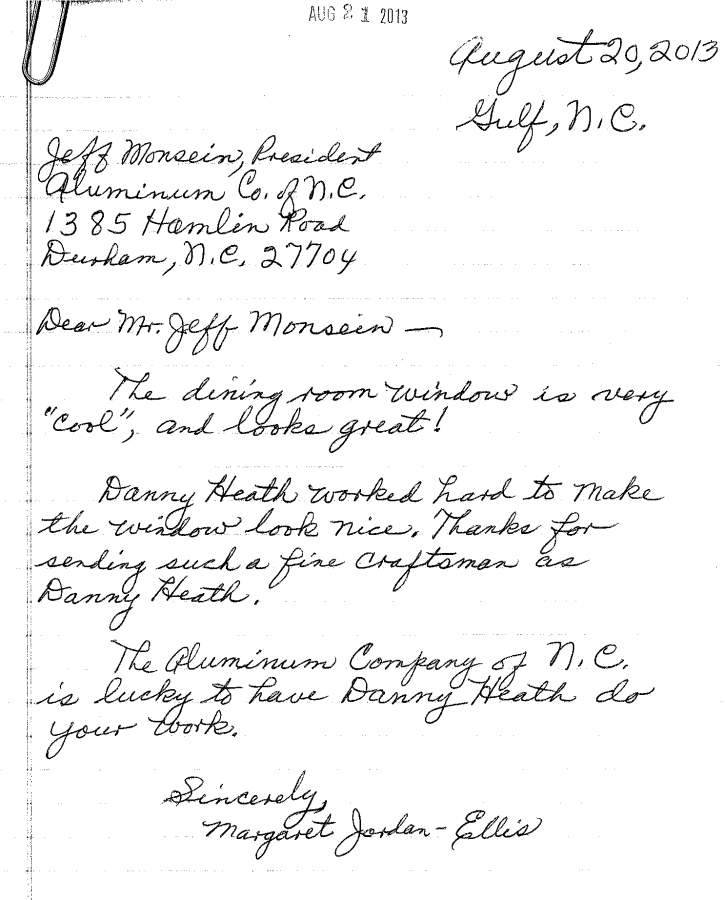 AUG 21 2013
August 20, 2013
Gulf, N.C.
Jeff Monsein, President
Aluminum Co. of N.C.
1385 Hamlin Road
Durham, N.C. 27704
Dear Mr. Jeff Monsein —
The dining room window is very
"cool", and looks great!
Danny Heath worked hard to make
the window look nice. Thanks for
sending such a fine craftsman as
Danny Heath.
The Aluminum Company of N.C.
is lucky to have Danny Heath do
your work.
Sincerely,
Margaret Jordan-Ellis